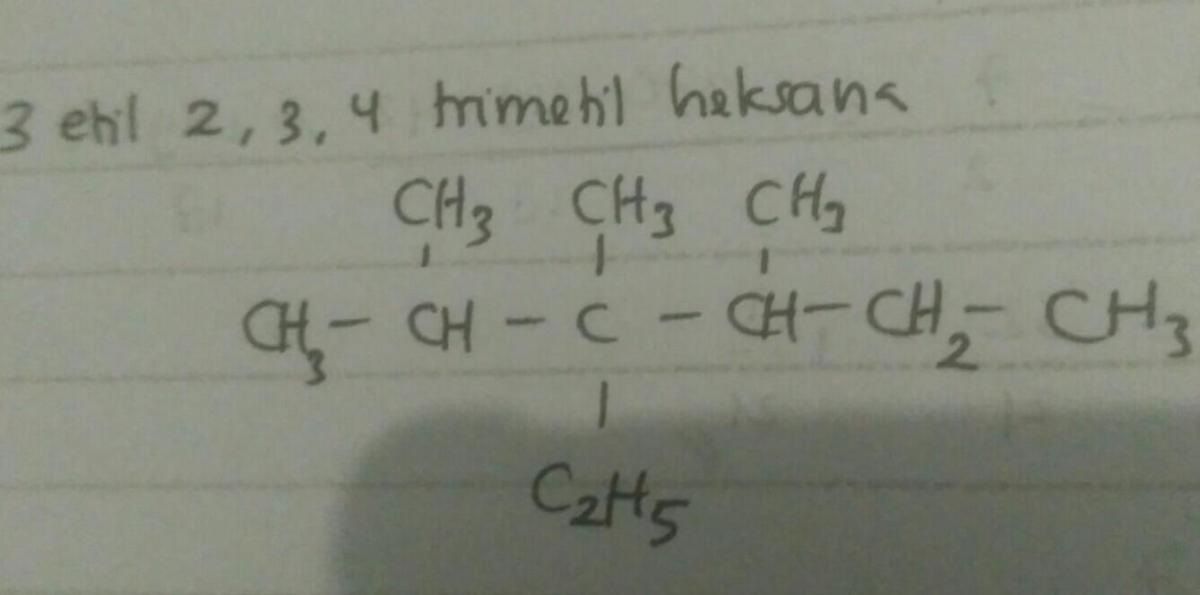 3 etil 2, 3, 4 trimetil heksana
CH3 CH3 CH3
CH3 - CH - C - CH - CH2 - CH3
C2H5